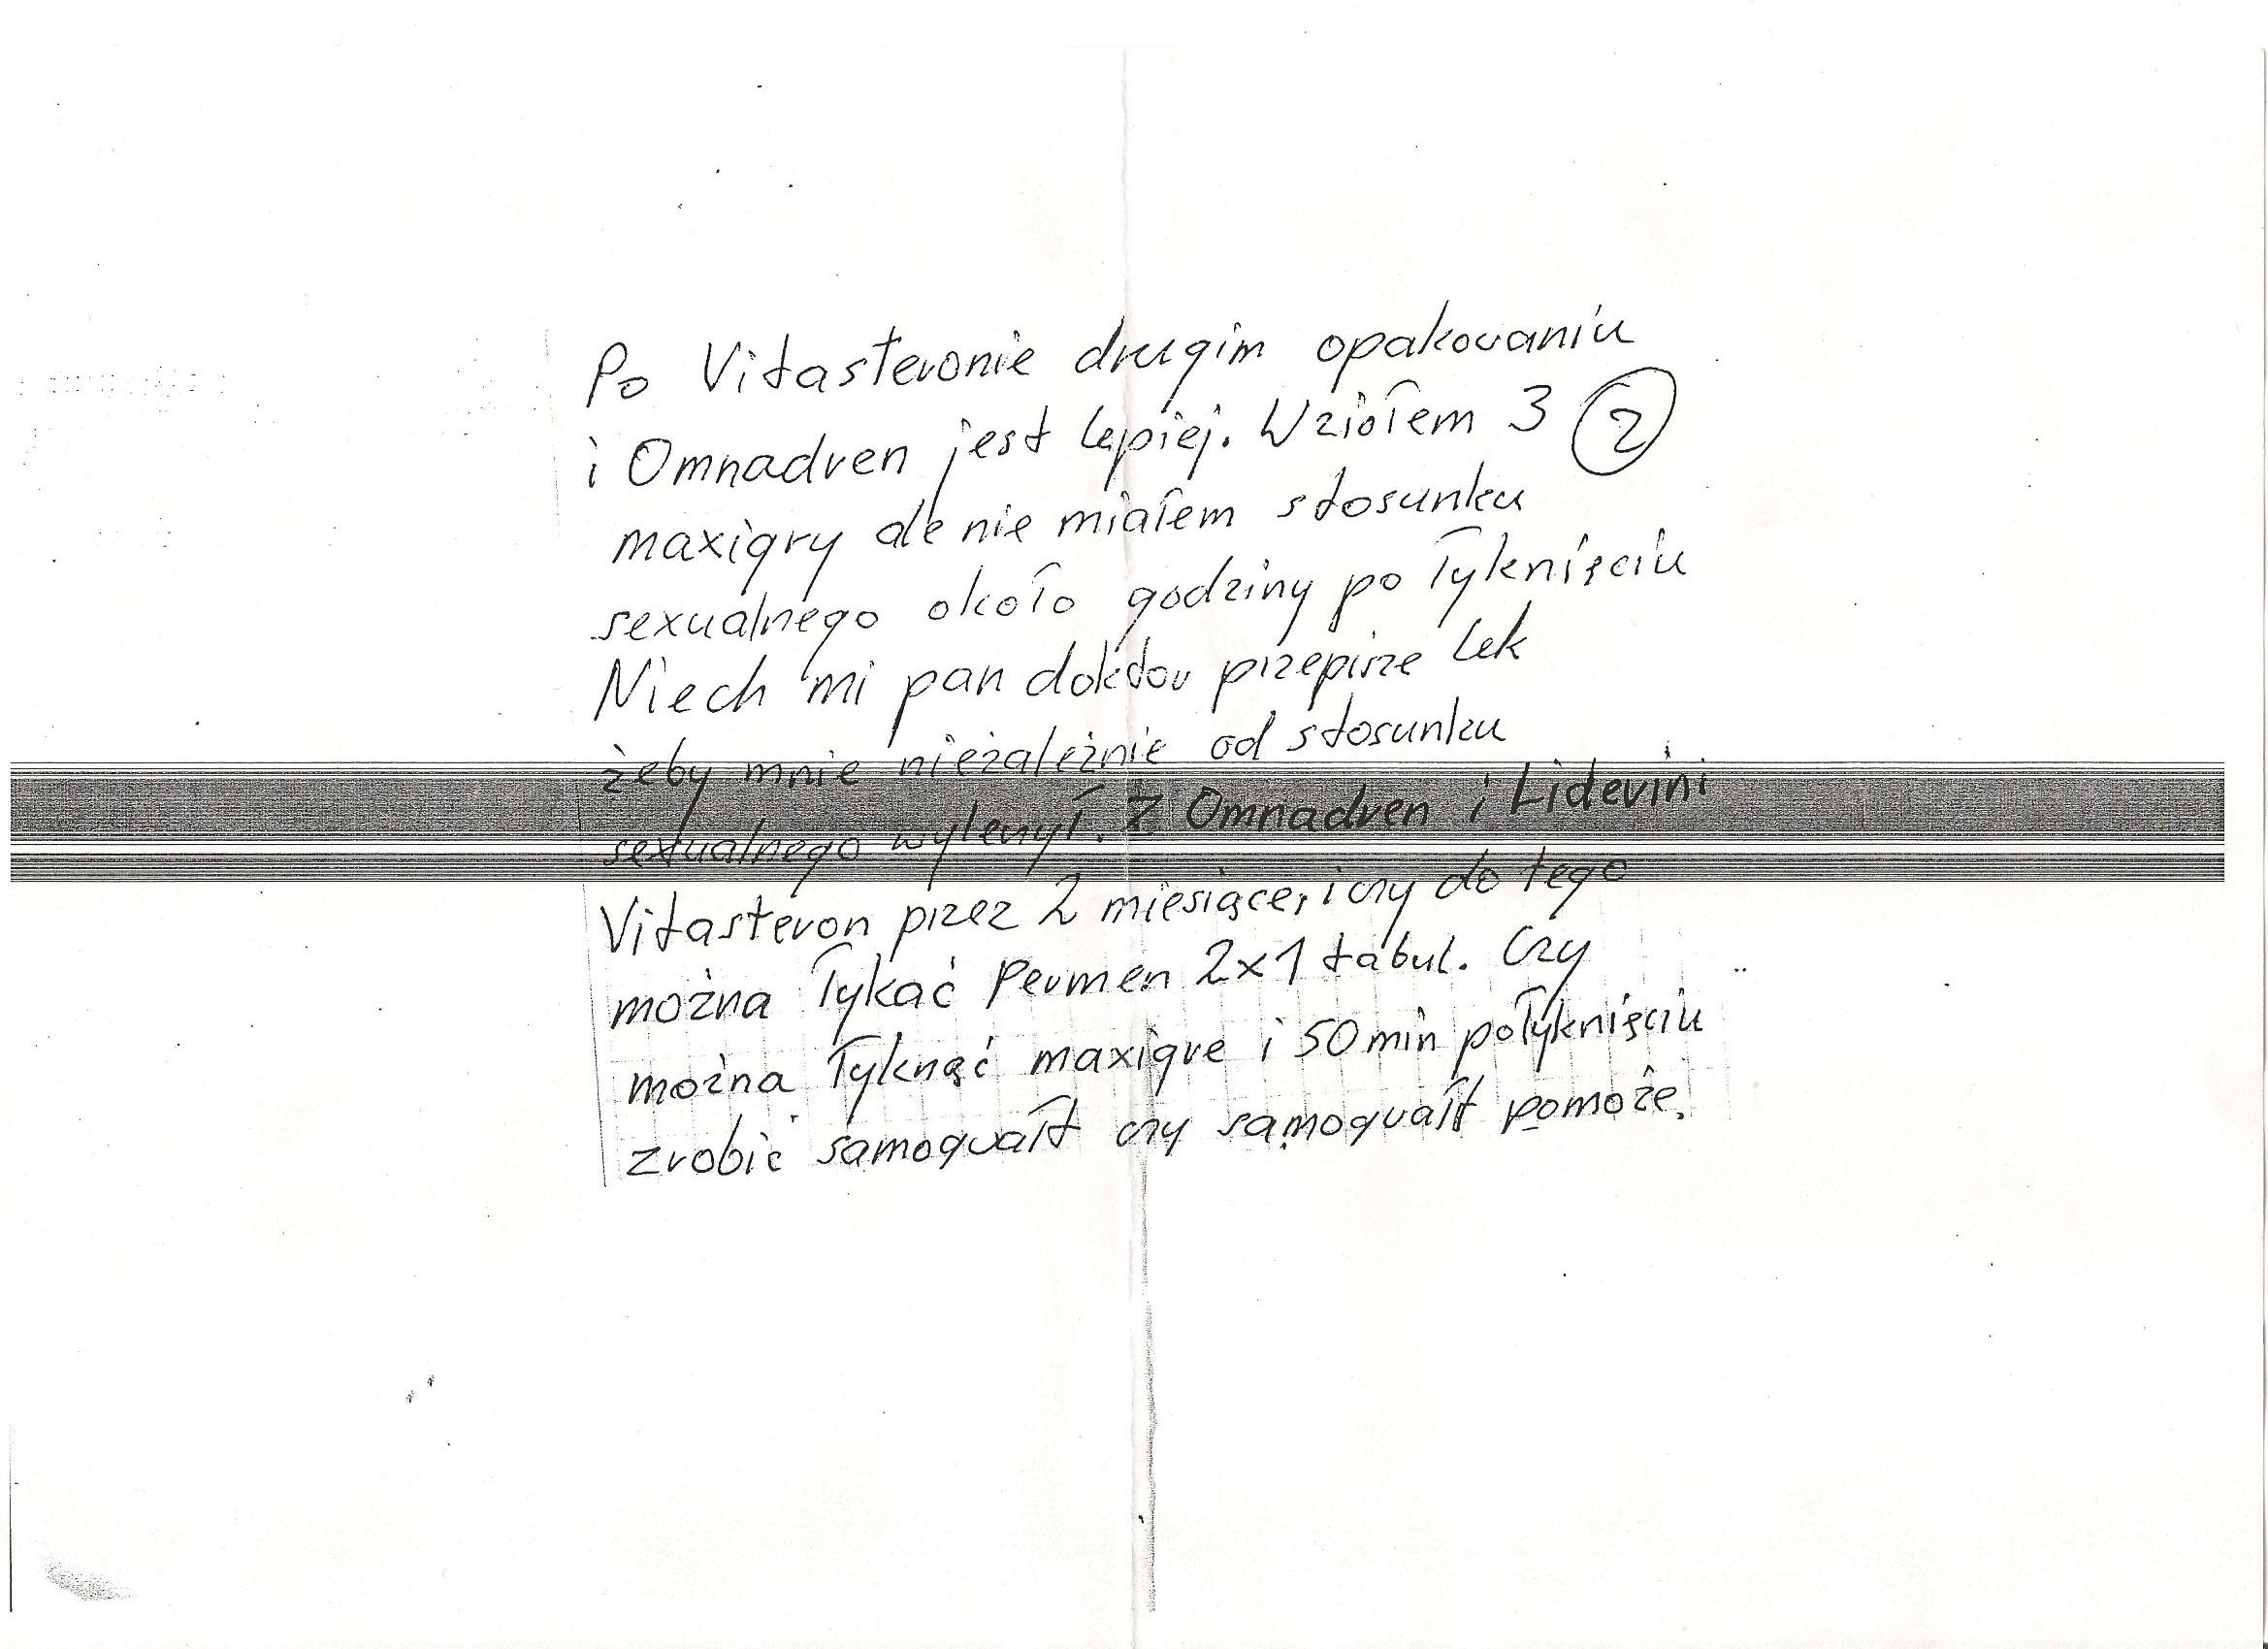 Po Vitasteronie drugim opakowaniu
i Omnadren jest lepiej. Wziołem 3 2
maxigry ale nie miałem stosunku
sexualnego około godziny po łyknięciu
Niech mi pan doktor przepisze lek
żeby mnie niezależnie od stosunku
sexualnego wyleczył. Z Omnadren i Lidevini
Vitasteron przez 2 miesiące, i czy do tego
można łykać Permen 2x1 tabul. Czy
można łyknąć maxigre i 50 min połyknięciu
zrobić samogwałt czy samogwałt pomoże.